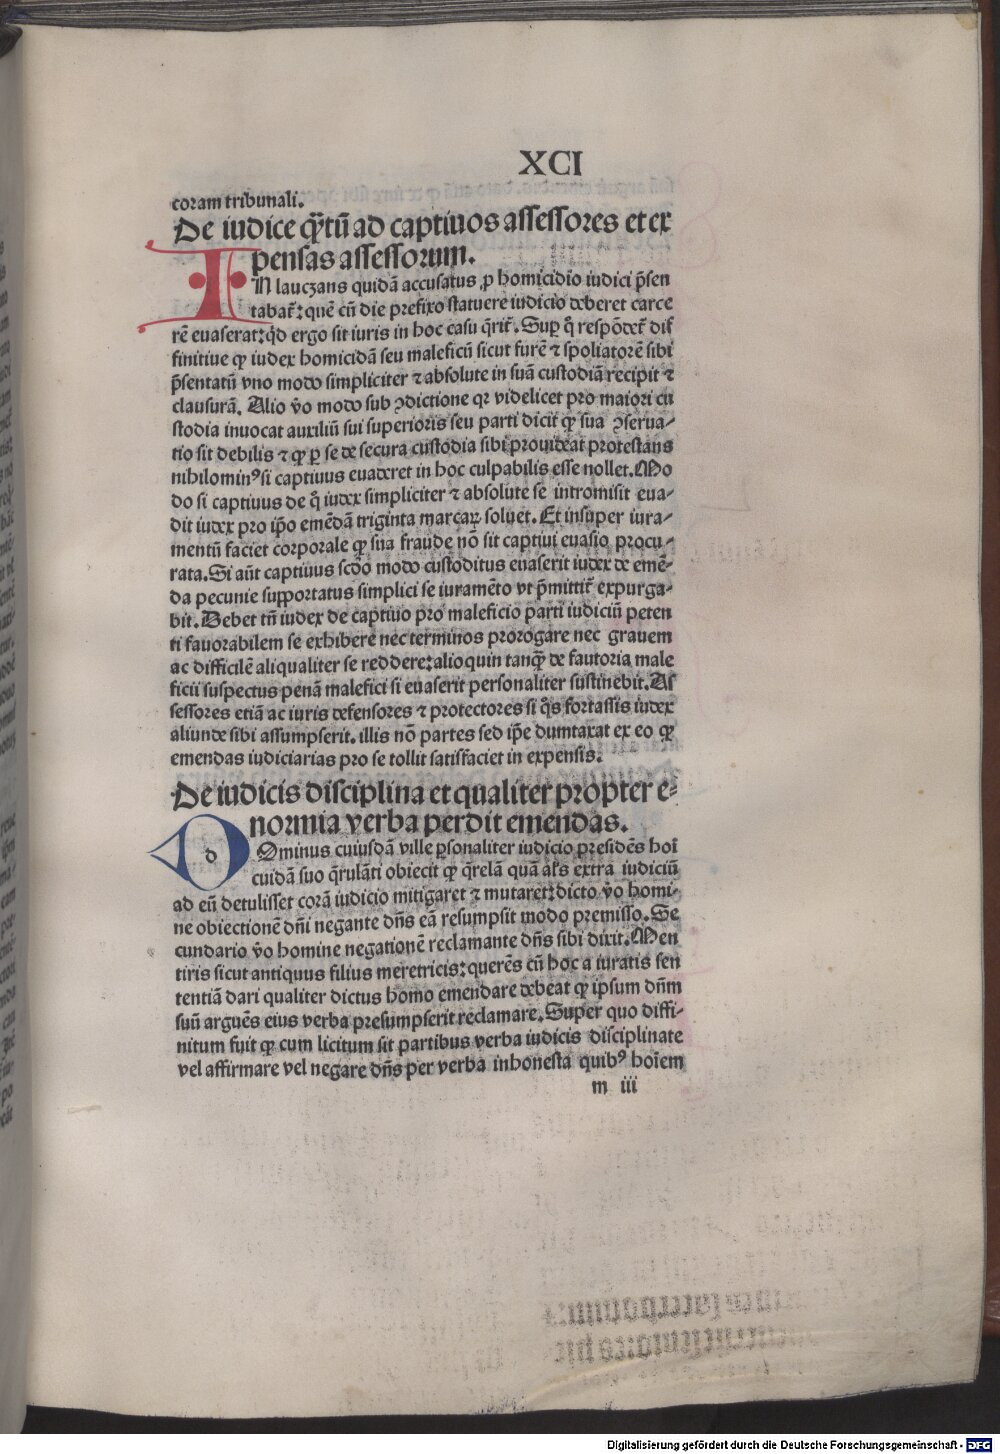 XCI
coram tribunali.
De iudice q̃tũ ad captiuos assessores et ex
pensas assessorum.
IN lauczans quidã accusatus ꝓ homicidio iudici p̃sen
tabat̃: quẽ cũ die prefixo statuere iudicio deberet carce
rẽ euaserat: qd̕ ergo sit iuris in hoc casu q̃rit̃. Suꝑ q̃ respõdet̃ dif
finitiue ꝙ iudex homicidã seu maleficũ sicut furẽ ⁊ spoliatorẽ sibi
p̃sentatũ vno modo simpliciter ⁊ absolute in suã custodiã recipit ⁊
clausurã. Alio v̾o modo sub ꝯdictione qꝛ videlicet pro maiori cu
stodia inuocat auxiliũ sui superioris seu parti dicit ꝙ sua ꝯserua⸗
tio sit debilis ⁊ ꝙ ꝑ se de secura custodia sibi prouideat protestans
nihilominꝰ si captiuus euaderet in hoc culpabilis esse nollet. Mo
do si captiuus de q̃ iudex simpliciter ⁊ absolute se intromisit eua⸗
dit iudex pro ip̃o emẽdã triginta marcaꝝ soluet. Et insuper iura⸗
mentũ faciet corporale ꝙ sua fraude nõ sit captiui euasio procu⸗
rata. Si aũt captiuus scd̃o modo custoditus euaserit iudex de emẽ⸗
da pecunie supportatus simplici se iuramẽto vt p̃mittit̃ expurga⸗
bit. Debet tñ iudex de captiuo pro maleficio parti iudiciũ peten
ti fauorabilem se exhibere nec terminos prorogare nec grauem
ac difficilẽ aliqualiter se reddere: alioquin tanq̃ de fautoria male
ficii suspectus penã malefici si euaserit personaliter sustinebit. As
sessores etiã ac iuris defensores ⁊ protectores si q̃s fortassis iudex
aliunde sibi assumpserit. illis nõ partes sed ip̃e dumtaxat ex eo ꝙ
emendas iudiciarias pro se tollit satisfaciet in expensis.
De iudicis disciplina et qualiter propter e⸗
normia verba perdit emendas.
DOminus cuiusdã ville ꝑsonaliter iudicio presidẽs hoĩ
cuidã suo q̃rulãti obiecit ꝙ q̃relã quã al̕s extra iudiciũ
ad eũ detulisset corã iudicio mitigaret ⁊ mutaret: dicto v̾o homi⸗
ne obiectionẽ dñi negante dñs eã resumpsit modo premisso. Se
cundario v̾o homine negationẽ reclamante dñs sibi dixit. Men
tiris sicut antiquus filius meretricis: querẽs cũ hoc a iuratis sen
tentiã dari qualiter dictus homo emendare debeat ꝙ ipsum dñm
suũ arguẽs eius verba presumpserit reclamare. Super quo diffi⸗
nitum fuit ꝙ cum licitum sit partibus verba iudicis disciplinate
vel affirmare vel negare dñs per verba inhonesta quibꝰ hoĩem
m iii
Digitalisierung gefördert durch die Deutsche Forschungsgemeinschaft - DFG